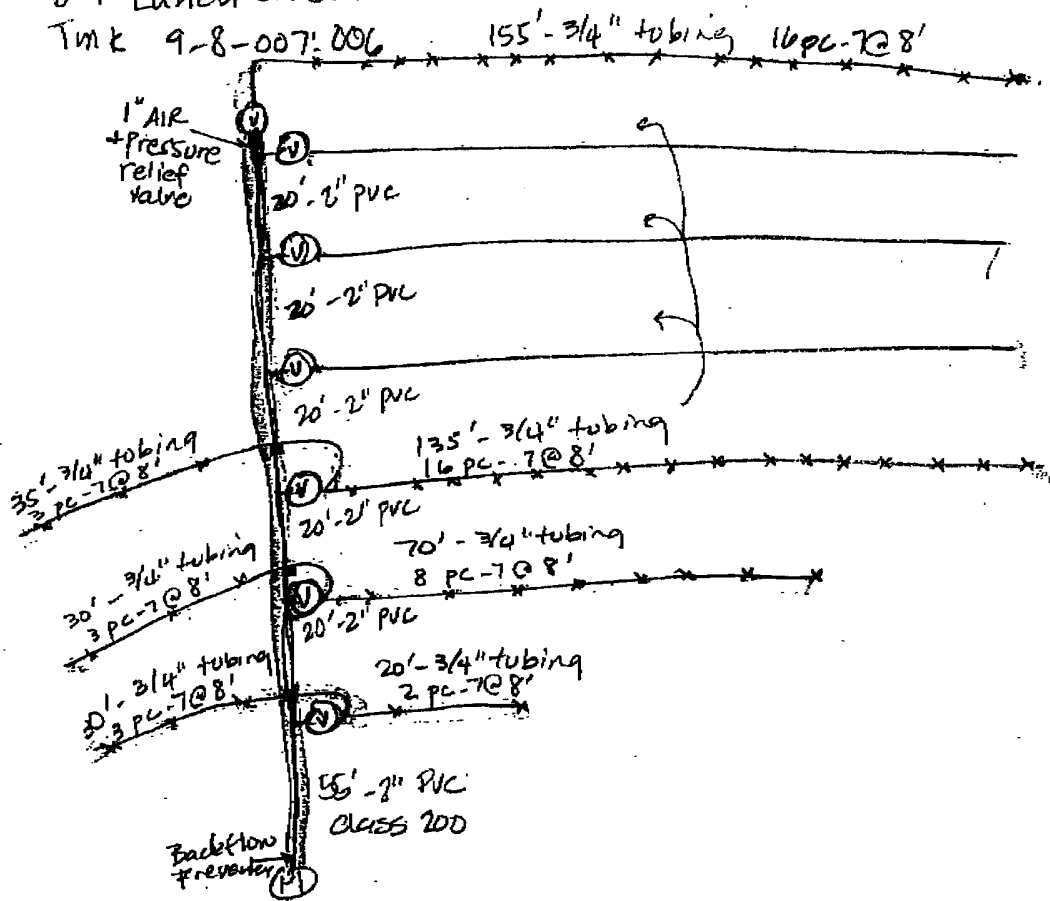 Tmk 9-8-007:006
155'-3/4" tubing 16pc-7@8'
1" AIR
+ Pressure
relief
valve
V
V
20'-2" PVC
V
20'-2" PVC
V
20'-2" PVC
35'-3/4" tubing
3 pc-7@8'
135'-3/4" tubing
16 pc-7@8'
V
20'-2" PVC
30'-3/4" tubing
3 pc-7@8'
70'-3/4" tubing
8 pc-7@8'
V
20'-2" PVC
30'-3/4" tubing
3 pc-7@8'
20'-3/4" tubing
2 pc-7@8'
V
55'-2" PVC
Class 200
Backflow
Preventer